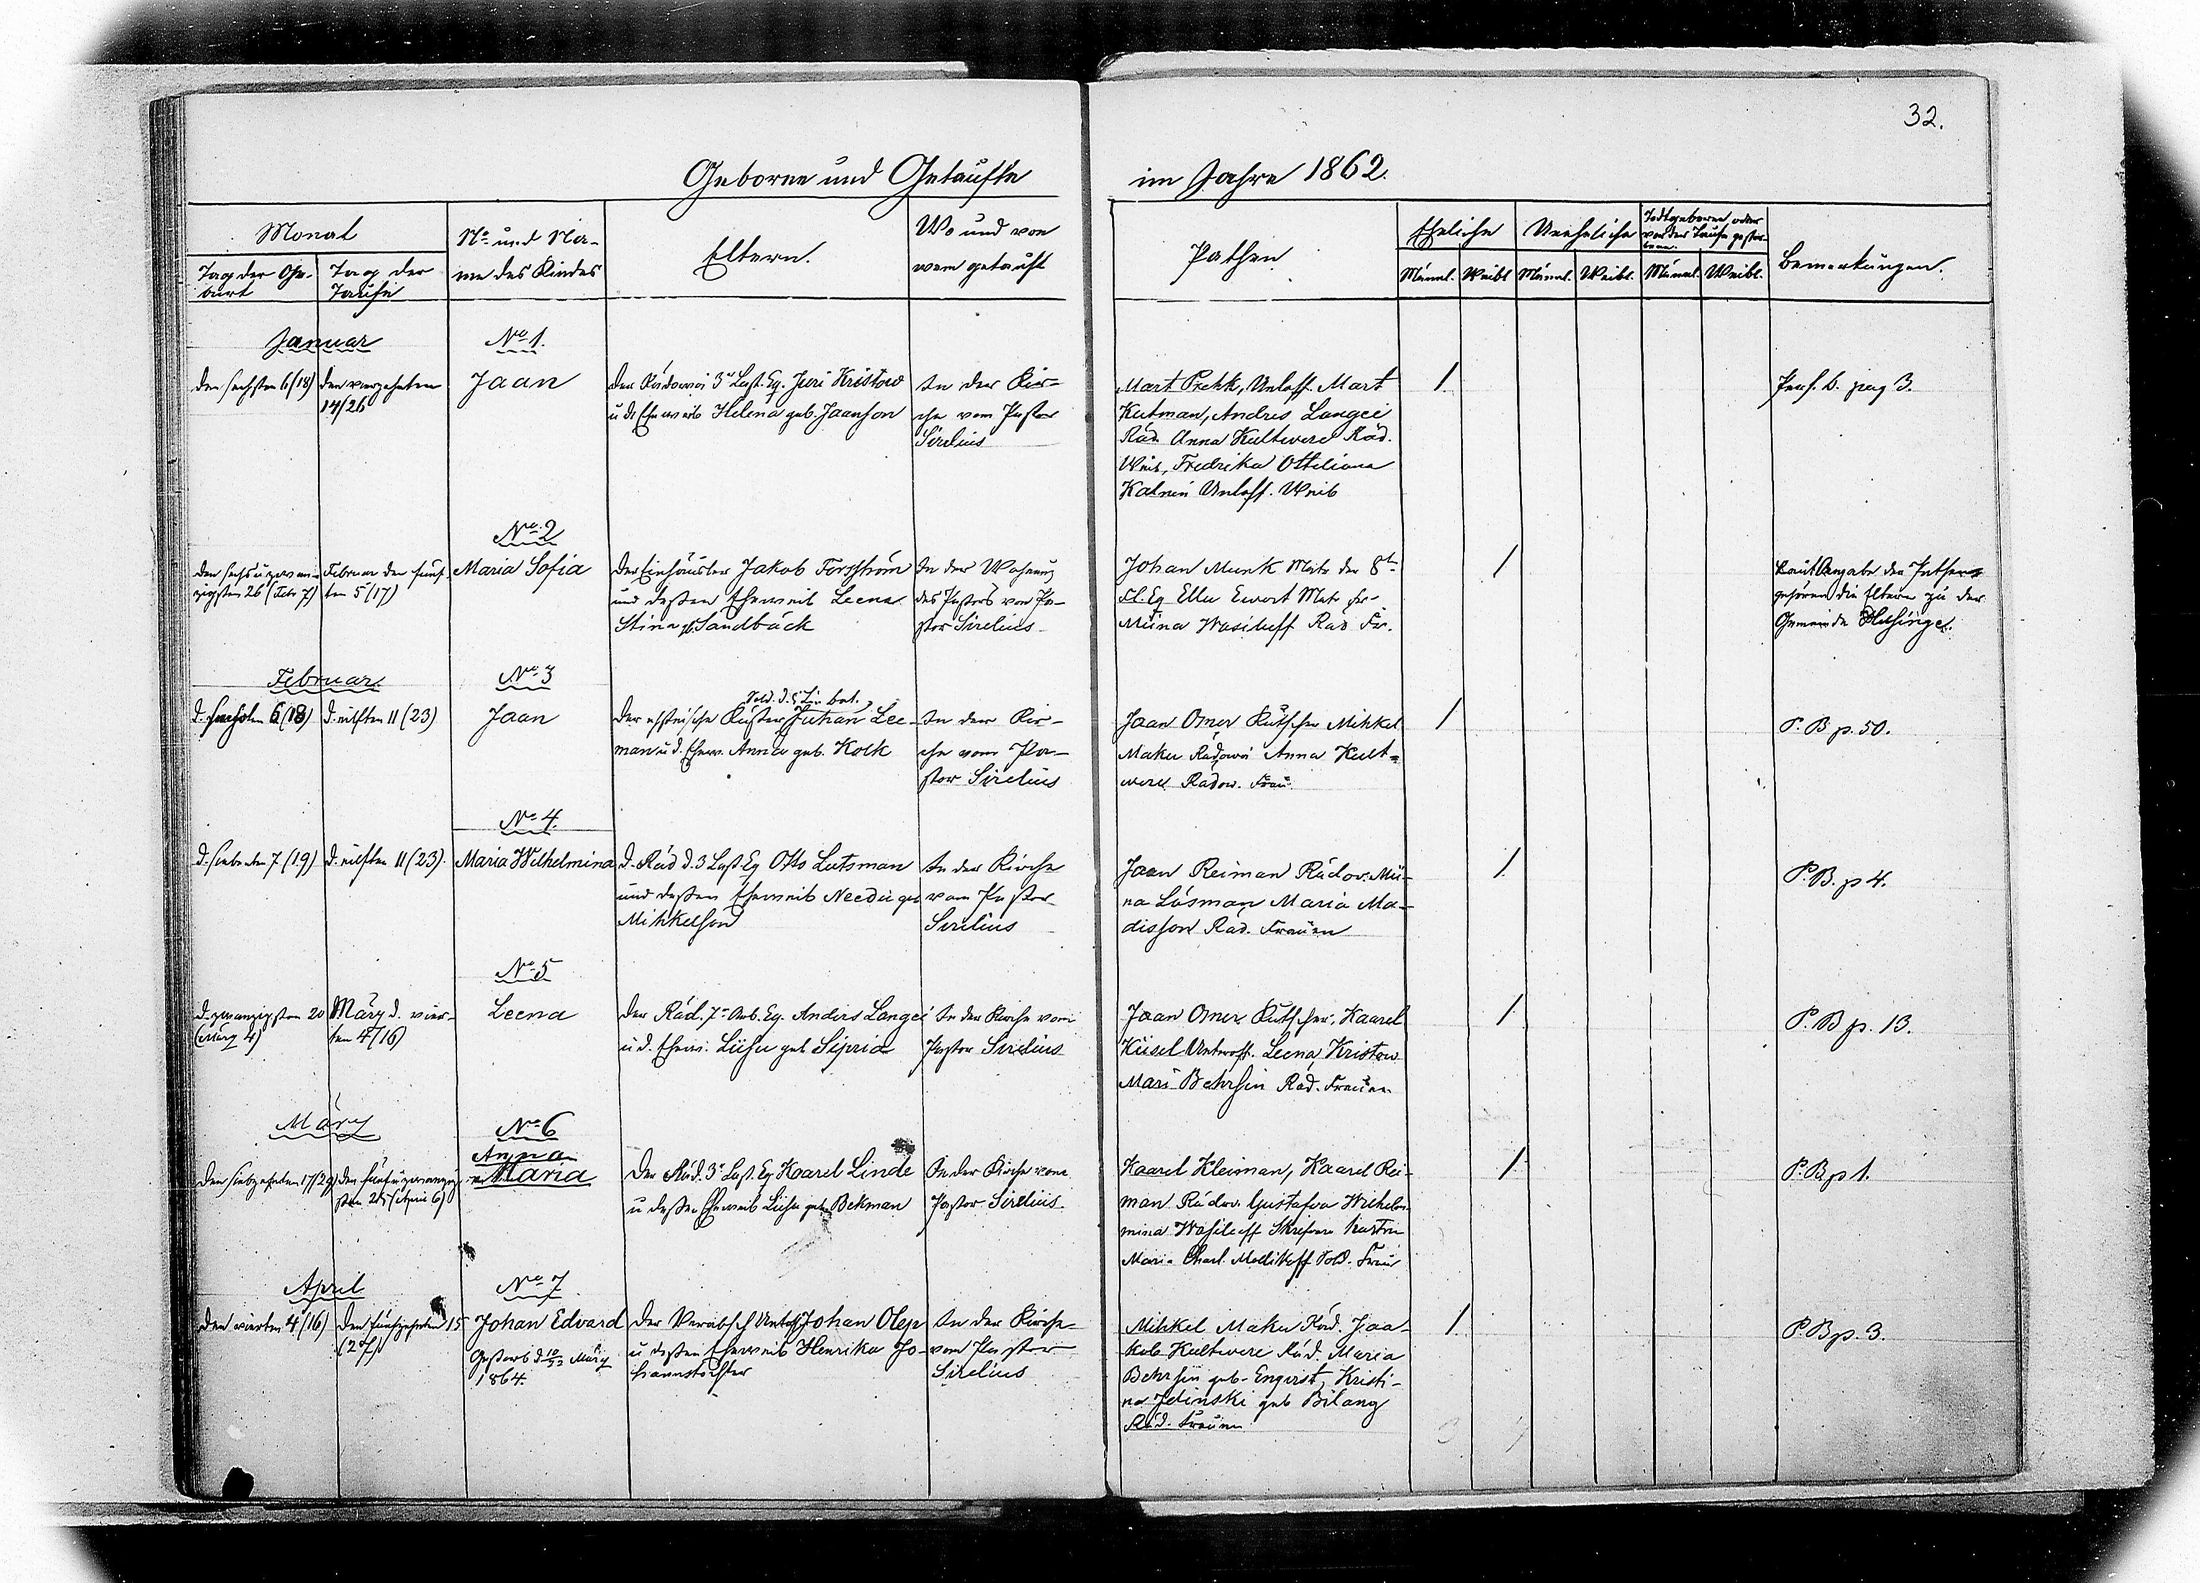 32.
Geborne und Getaufte im Jahre 1862.
Monat
Tag der Ge-
burt
Tag der
Taufe
No und Na-
me des Kindes
Eltern.
Wo und von
wem getauft
Pathen
Eheliche
Unehliche
Todtgeborene oder
vor der Taufe gestor-
bene.
Männl. Weibl Männl. Weibl. Männl. Weibl.
Bemerkungen.
Januar
No 1.
den sechsten 6/(18)
den vierzehnten
14/26
Jaan
Der Rädowoi 3r Last. Eq. Juri Kristow
u ds Eheweib Helena geb. Jaanson
In der Kir-
che vom Pastor
Sirelius
Mart Prehk, Unloff. Mart
Kutman, Andres Langei
Räd. Anna Kultwere Räd.
Weib, Fredrika Ottiliana
Katnei Unloff. Weib
/
Pers. b. pag 3.
No 2
den sechsuzwan-
zigsten 26 (Febr 7)
Februar den fünf-
ten 5/(17)
Maria Sofia
Der Einhäusler Jakob Forsström
und dessen Eheweib Leena
Stina gb. Sandbäck
In der Wohnung
des Pastors von Pa-
stor Sirelius
Johan Munk Matr der 8ten
Fl. Eq Ella Ewert Matr Fr-
Miina Wasileff Rad Fr.
/
Laut Angabe der Pathen
gehören die Eltern zu der
Gemeinde Helsinge.
Februar
No 3
d. sechsten 6 (18)
d. eilften 11 (23)
Jaan
Sold. d. 5 Lin bat.
Der ehstnische Küster Juhan Lee-
man u d. Ehew. Anna geb. Kolk
In der Kir-
che vom Pa-
stor Sirelius
Jaan Omer Kutscher Mihkel
Maku Radowoi Anna Kult-
were Radow. Frau.
/
P. B p. 50.
No 4.
d. siebenten 7 (19)
d. eilften 11 (23).
Maria Wilhelmina
d. Räd d. 3 Last Eq Otto Lutsman
und dessen Eheweib Needu geb
Mihkelson
In der Kirche
vom Pastor
Sirelius
Jaan Reiman Rädow. Mii-
na Läsman Maria Ma-
disson Rad. Frauen
/
P. B. p 4.
No 5
d. zwanzigsten 20
(März 4)
März d. vier-
ten 4/16)
Leena
Der Räd. 7r Arb. Eq. Anders Langei
u d. Ehew. Liisu geb Sipria
In der Kirche vom
Pastor Sirelius
Jaan Omer Kutscher, Kaarel
Kiisel Unteroff. Leena Kristow
Mari Behrsin Räd. Frauen
/
P. B p. 13.
März
No 6
den siebzehnten 17/29)
den fünfuzwanzig-
sten 25 (April 6)
Anna
Maria
Der Räd. 3r Last. Eq Kaarel Linde
u dessen Eheweib Liisu geb Bekman
In der Kirche vom
Pastor Sirelius.
Kaarel Kleiman, Kaarel Rei-
man Rädow. Gustafva Wilhel-
mina Wasileff
Maria Charl. Mellikoff Sold. Frau
/
P. B p 1.
April
No 7
den vierten 4/(16)
den fünfzehnten 15
(27)
Johan Edvard
Gestorb d 10/22 März
1864.
Der Verabsch Untoff Johan Olep
u dessen Eheweib Henrika Jo-
hannstochter
In der Kirche
vom Pastor
Sirelius
Mihkel Maku Räd. Jaa-
kob Kultwere Räd. Maria
Behrsin geb. Enqvist, Kristi-
na Jelinski geb Bilang
Räd. Frauen
/
P. B p. 3.